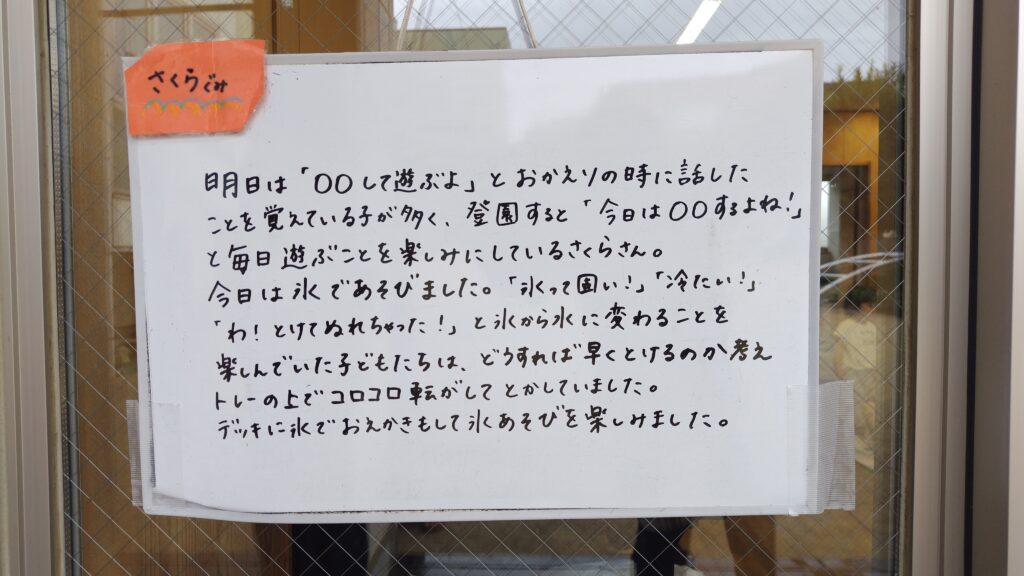 さくらぐみ
明日は「〇〇して遊ぶよ」とおかえりの時に話した
ことを覚えている子が多く、登園すると「今日は〇〇するよね!」
と毎日遊ぶことを楽しみにしているさくらさん。
今日は氷であそびました。「氷って固い!」「冷たい!」
「わ!とけてぬれちゃった!」と氷から水に変わることを
楽しんでいた子どもたちは、どうすれば早くとけるのか考え
トレーの上でコロコロ転がしてとかしていました。
デッキに氷でおえかきもして氷あそびを楽しみました。